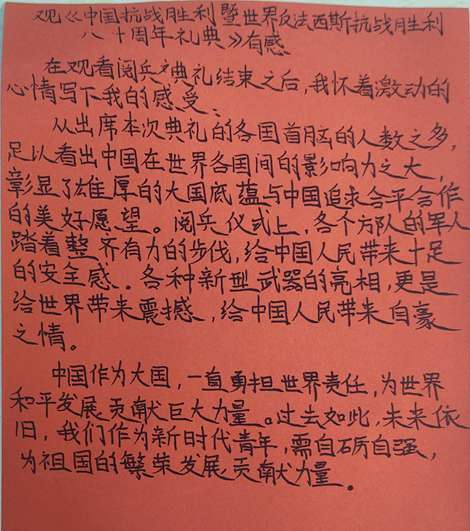 观《中国抗战胜利暨世界反法西斯抗战胜利
八十周年礼典》有感
在观看阅兵典礼结束之后，我怀着激动的
心情写下我的感受：
从出席本次典礼的各国首脑的人数之多，
足以看出中国在世界各国间的影响力之大，
彰显了雄厚的大国底蕴与中国追求合平合作
的美好愿望。阅兵仪式上，各个方队的军人
踏着整齐有力的步伐，给中国人民带来十足
的安全感。各种新型武器的亮相，更是
给世界带来震撼，给中国人民带来自豪
之情。
中国作为大国，一直勇担世界责任，为世界
和平发展贡献巨大力量。过去如此，未来依
旧，我们作为新时代青年，需自砺自强，
为祖国的繁荣发展贡献力量。